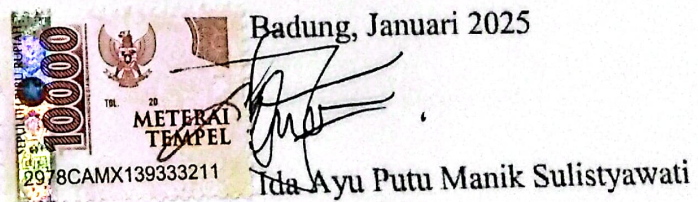 Badung, Januari 2025
SEPULUH RIBU RUPIAH
10000
TGL. 20
METERAI
TEMPEL
2978CAMX139333211
Ida Ayu Putu Manik Sulistyawati